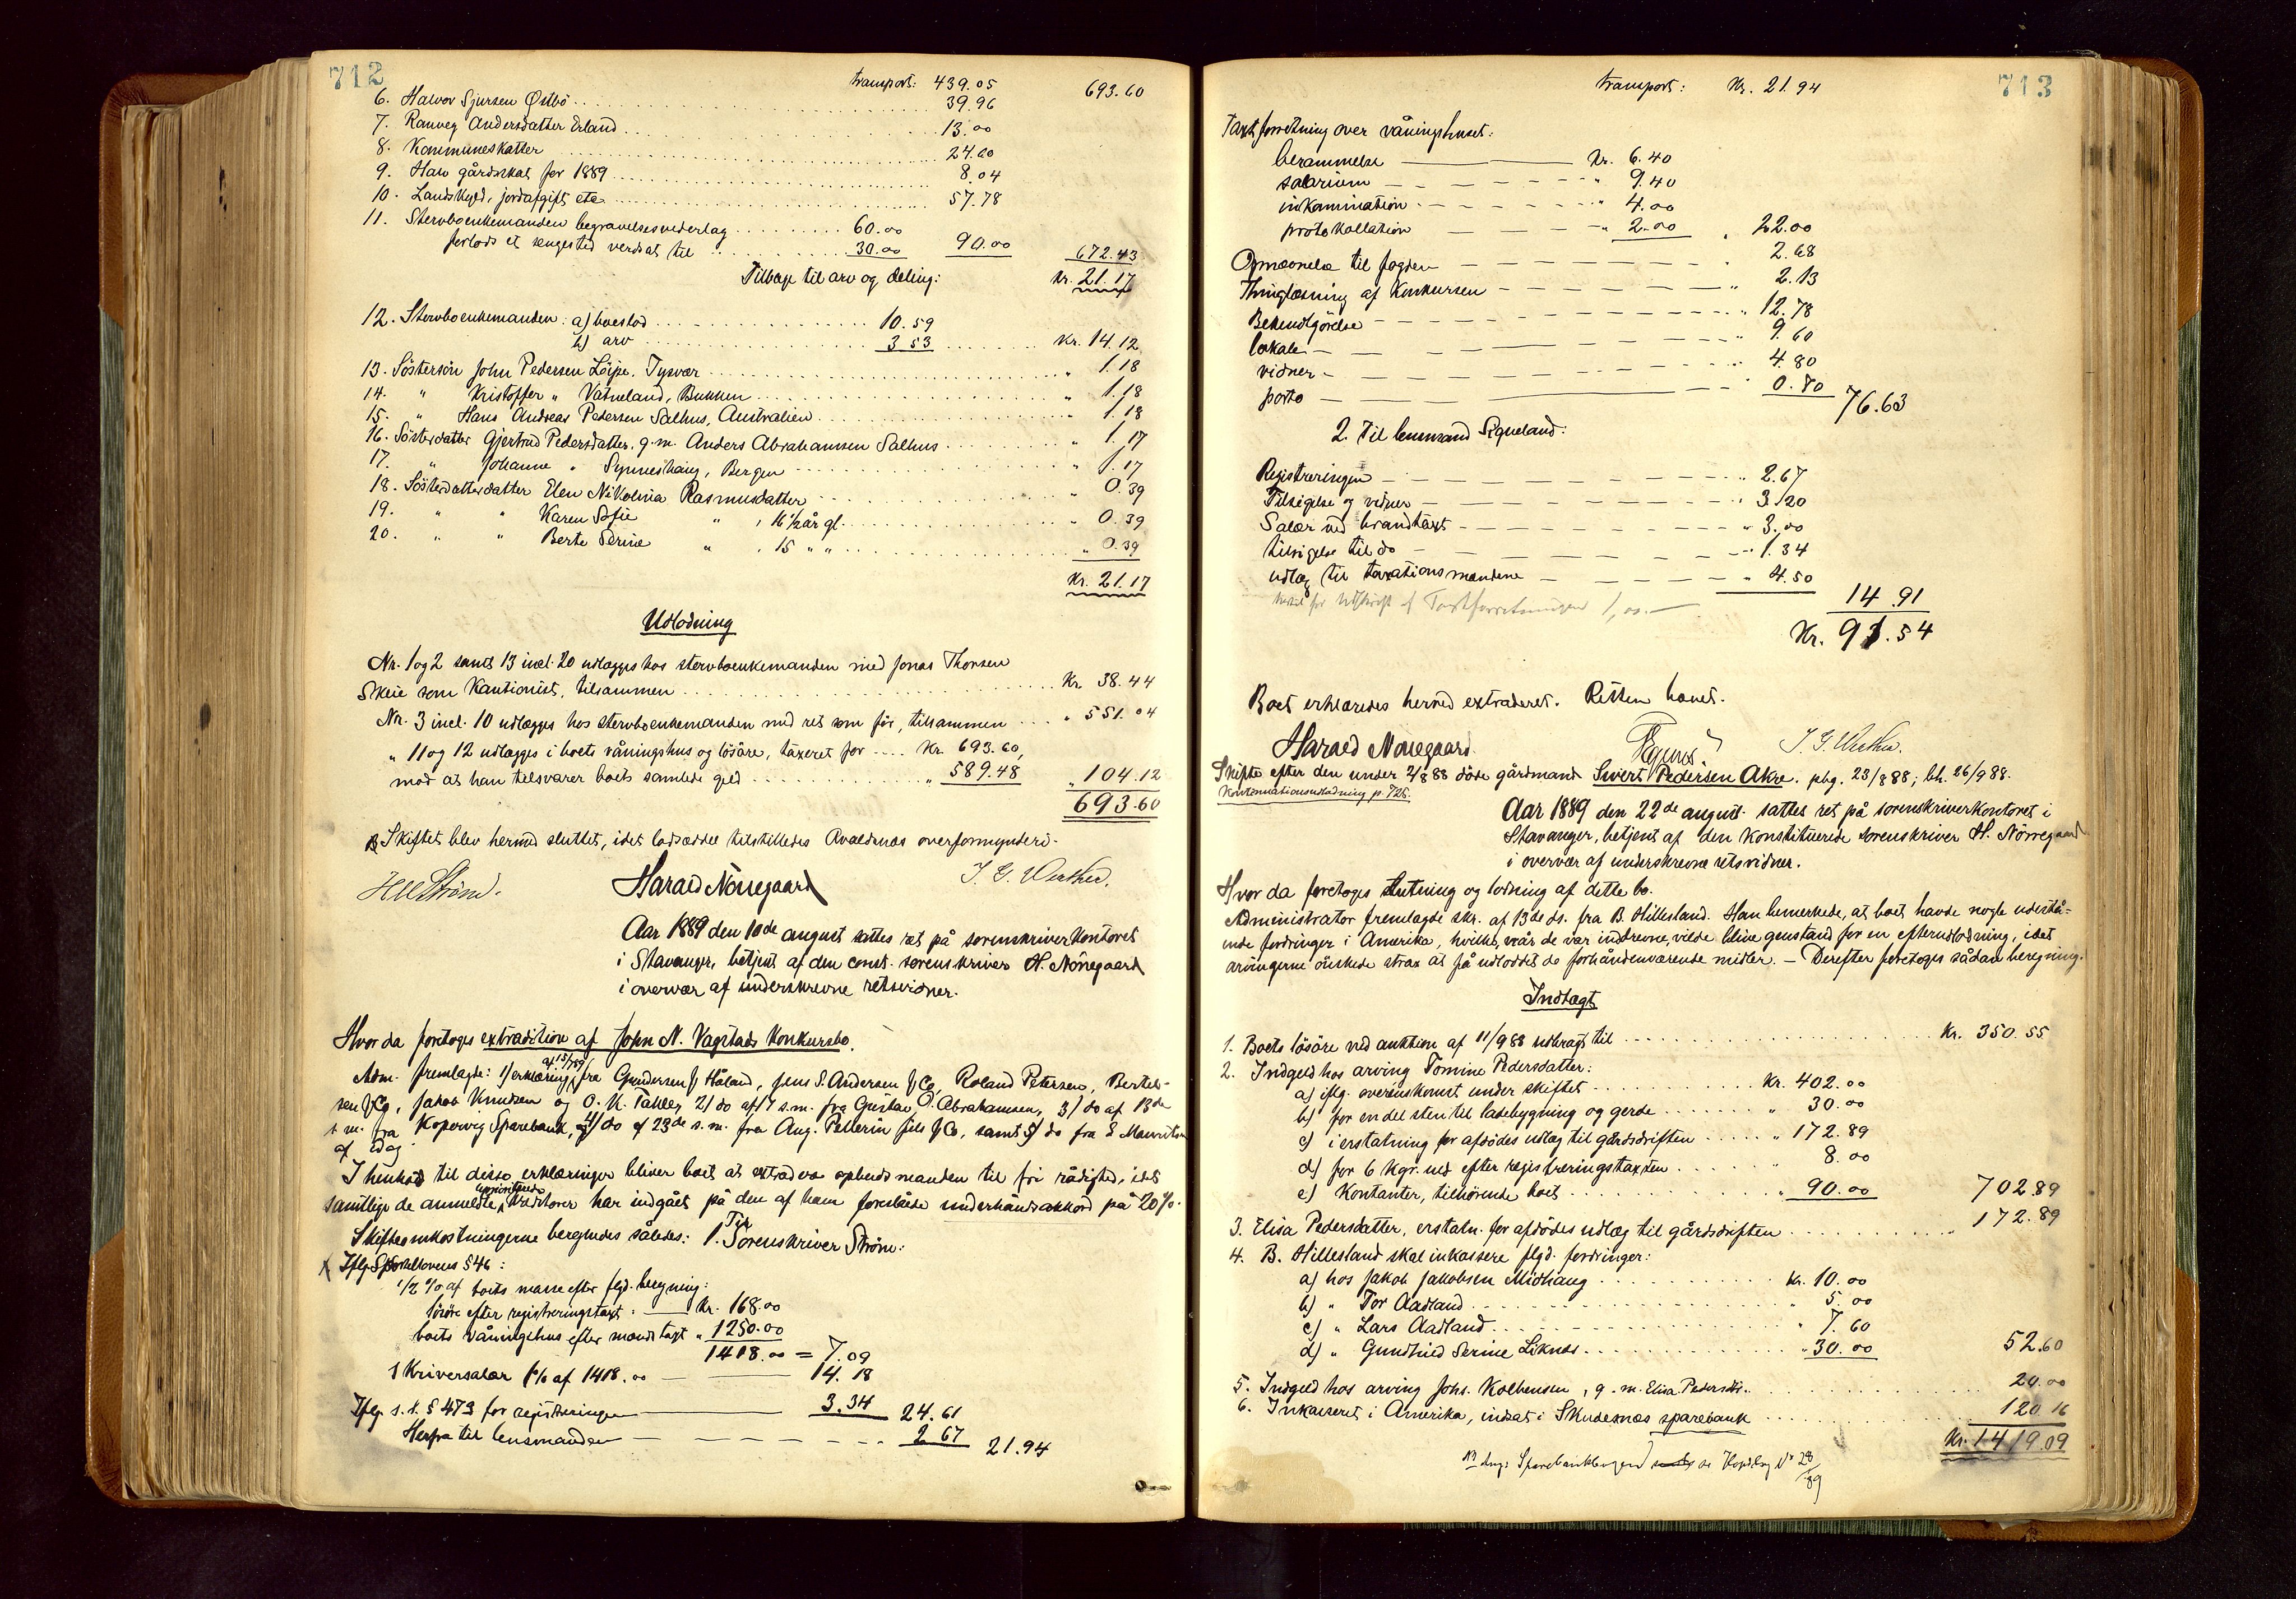 712
transport: 439.05 693.60
6. Halvor Sjursen Østbö 39.96
7. Ranveg Andersdatter Erland 13.00
8. Kommuneskatter 24.60
9. Halv gårdskat for 1889 8.04
10. Landskyld, jordafgift etc 57.78
11. Stervboenkemanden begravelsesvederlag 60.00
forlods et sengested verdsat til 30.00 90.00 672.43
Tilbage til arv og deling: Kr. 21.17
12. Stervboenkemanden: a) boeslod 10.59
b) arv 3.53 Kr. 14.12
13. Söstersön John Pedersen Löipe, Tysvær " 1.18
14. " Kristoffer " Vatneland, Bukken " 1.18
15. " Hans Andreas Pedersen Salhus, Australien " 1.18
16. Sösterdatter Gjertrud Pedersdatter, g.m. Anders Abrahamsen Salhus " 1.17
17. " Johanne " Synneshaug, Bergen " 1.17
18. Sösterdatterdatter Elen Nikolina Rasmusdatter " 0.39
19. " " Karen Sofie " , 16 1/2 år gl. " 0.39
20. " " Berte Serine " , 15 " " " 0.39
Kr. 21.17
Udlodning
Nr. 1 og 2 samt 13 incl. 20 udlægges hos stervboenkemanden med Jonas Thorsen
Skeie som Kautionist, tilsammen Kr. 38.44
Nr. 3 incl. 10 udlægges hos stervboenkemanden med ret som för, tilsammen " 551.04
" 11 og 12 udlægges i boets våningshus og lösöre, taxeret for Kr. 693.60,
mod at han tilsvarer boets samlede gjeld " 589.48 " 104.12
693.60
Skiftet blev hermed sluttet, idet lodseddel tilstilledes Avaldsnes overformynderi.
Harald Nörregaard
Aar 1889 den 10de august sattes ret på sorenskriverkontoret
i Stavanger, betjent af den const. sorenskriver H. Nörregaard
i overvær af underskrevne retsvidner.
Hvor da foretoges extradition af John N. Vagstads Konkursbo.
Adm. fremlagde: 1) erklæring af 15/7 89 fra Gundersen & Håland, Jens S. Andersen & Co, Roland Petersen, Bertel-
sen & Co, Jakob Knudsen og O. K. Takle, 2) do af 17 s.m. fra Gustav O. Abrahamsen, 3) do af 18de
s.m. fra Kopervig Sparebank, 4) do af 23de s.m. fra Aug. Pellerin fils & Co, samt 5) do fra S Mauritsen
af idag
I henhold til disse erklæringer bliver boet at extradere opbudsmanden til fri rådighed, idet
samtlige de anmeldte uprioriterede kreditorer har indgået på den af ham foreslåede underhåndsakkord på 20%.
Skifteomkostningerne beregnedes således: 1. Til Sorenskriver Ström:
Iflg Sportelloven § 46:
1/2 % af boets masse efter flgd. beregning:
lösöre efter registreringstaxt: Kr. 168.00
boets våningshus efter taxt " 1250.00
1418.00 = 7.09
Skriversalær 1% af 1418.00 14.18
Iflg s.l. § 473 for registreringen 3.34 24.61
Herfra til lensmanden 2.67 21.94
713
transport: Kr. 21.94
Taxtforretning over våningshuset:
berammelse Kr. 6.40
salarium " 9.40
inkamination " 4.00
protokollation " 2.00 " 22.00
til fogden " 2.68
Thinglæsning af Konkursen " 2.13
Bekendtgörelse " 12.78
lokale " 9.60
vidner " 4.80
porto " 0.70 76.63
2. Til lensmand Siqueland:
Registreringen " 2.67
Tilsigelse og vidner " 3.20
Salær ved brandtaxt " 3.00
tilsigelse til do " 1.34
udlæg til taxationsmændene " 4.50
for Udskrift af Taxtforretningen 1,00.—
14.91
Kr. 91.54
Boet erklæredes hermed extraderet. Retten hævet.
Harald Nörregaard
Skifte efter den under 2/8 88 döde gårdmand Sivert Pedersen Akre. pbg. 23/8 88; bh. 26/9 88.
Kontinuationsudlodning p. 725.
Aar 1889 den 22de august sattes ret på sorenskriverkontoret i
Stavanger, betjent af den konstituerede sorenskriver H. Nörregaard
i overvær af underskrevne retsvidner.
Hvor da foretoges slutning og lodning af dette bo.
Administrator fremlagde skr. af 13de ds. fra B. Hillesland. Han bemerkede, at boet havde nogle udestå-
ende fordringer i Amerika, hvilke, når de var inddrevne, vilde blive genstand for en efterudlodning, idet
arvingerne önskede strax at få udloddet de forhåndenværende midler. — Derefter foretoges sådan beregning.
Indtægt
1. Boets lösöre ved auktion af 11/9 88 udbragt til Kr. 350.55
2. Indgeld hos arving Tomine Pedersdatter:
a) iflg. overenskomst under skiftet Kr. 402.00
b) for en del sten til ladebygning og gerde " 30.00
c) i erstatning for afdödes udlæg til gårdsdriften " 172.89
d) for 6 kgr. uld efter registreringstaxten " 8.00
e) Kontanter, tilhörende boet " 90.00 702.89
3. Elisa Pedersdatter, erstatn. for afdödes udlæg til gårdsdriften " 172.89
4. B. Hillesland skal inkassere flgd. fordringer:
a) hos Jakob Jakobsen Midhaug Kr. 10.00
b) " Tor Aadland " 5.00
c) " Lars Aadland " 7.60
d) " Gundhild Serine Liknes " 30.00 52.60
5. Indgeld hos arving Johs. Kolbensen, g.m. Elisa Pedersdtr. 20.00
6. Inkasseret i Amerika, indsat i Skudesnæs sparebank 120.16
Kr. 1419.09